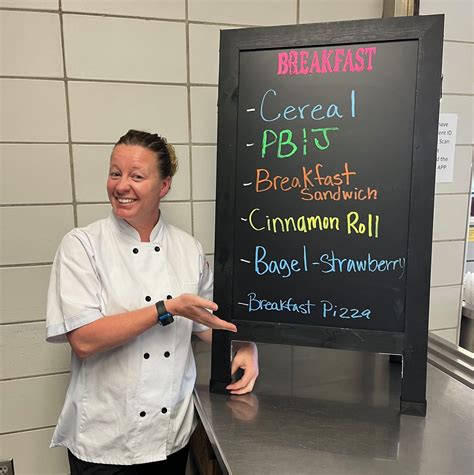 BREAKFAST
- Cereal
- PB&J
- Breakfast
Sandwich
- Cinnamon Roll
- Bagel-Strawberry
- Breakfast Pizza
have
ent ID
Scan
the
APP